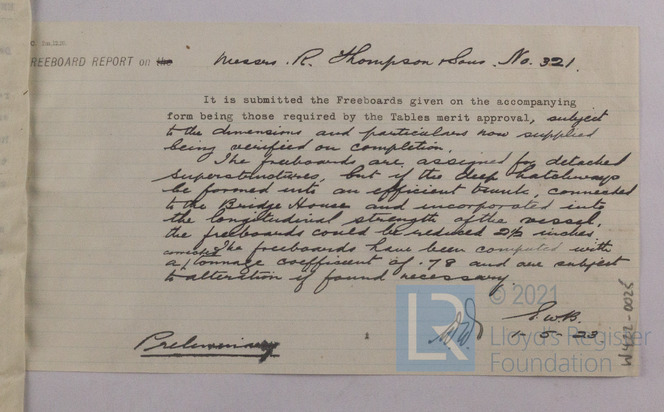 FREEBOARD REPORT on the Messrs. R. Thompson & Sons. No. 321.
It is submitted the Freeboards given on the accompanying
form being those required by the Tables merit approval, subject
to the dimensions and particulars now supplied
being verified on completion.
The freeboards are assigned for detached
superstructures, but if the deep hatchways
be formed into an efficient trunk, connected
to the Bridge House and incorporated into
the longitudinal strength of the vessel,
the freeboards could be reduced 2½ inches
The freeboards have been computed with
corrected
a tonnage coefficient of .78 and are subject
to alteration if found necessary.
© 2021
S.W.B.
1-5-23
LR
Lloyd's Register
Foundation
Preliminary
W422-0025